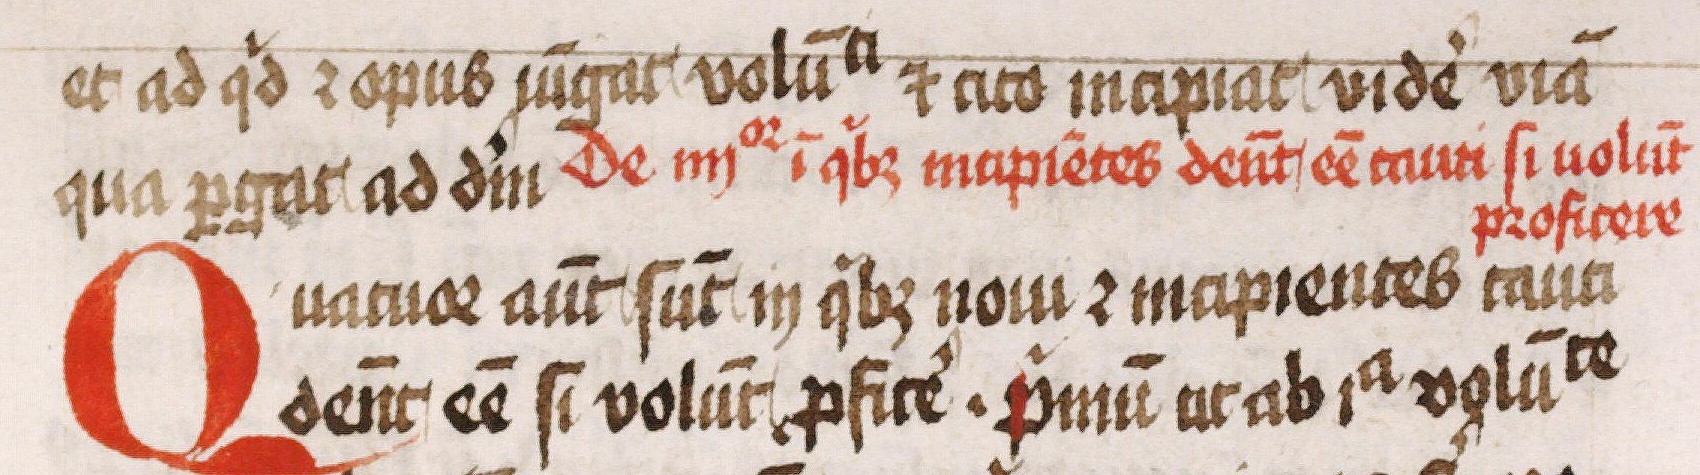 et ad qͥd ⁊ opus jūgat volūti ⁊ cito incipiat videˀ viā
qua ꝑgat ad dīn De iiijor ī qͥbꝫ incipiētes denͫt eē cauti si volūt
proficere
Quatuor aūt sūt in qͥbꝫ noui ⁊ incipientes cauti
denͫt eē si volūt ꝓficeˀ . pͥmū ut ab ia volūte